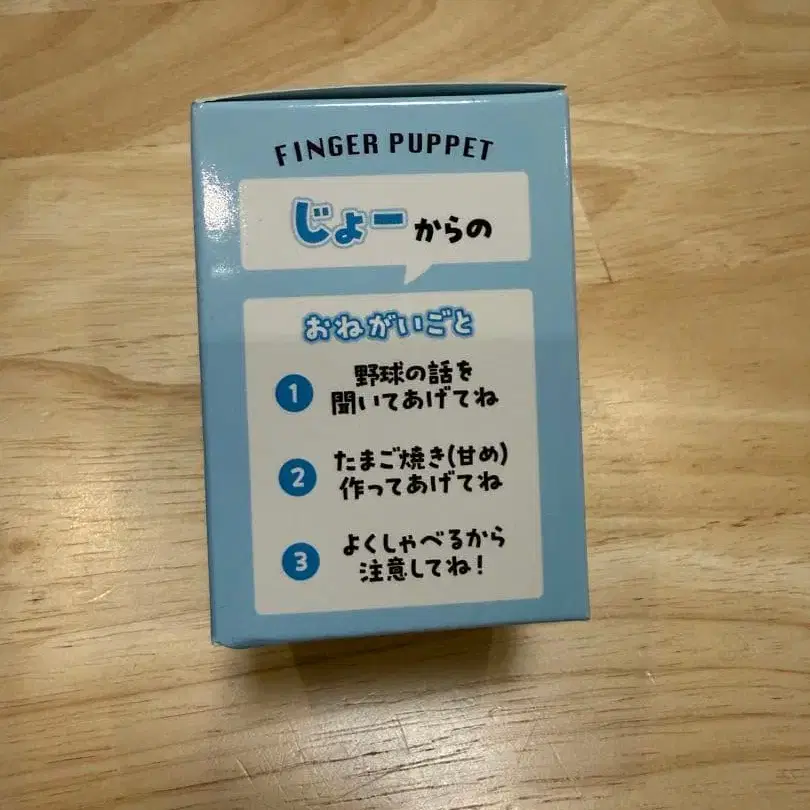 FINGER PUPPET
じょーからの
おねがいごと
1 野球の話を
聞いてあげてね
2 たまご焼き(甘め)
作ってあげてね
3 よくしゃべるから
注意してね!